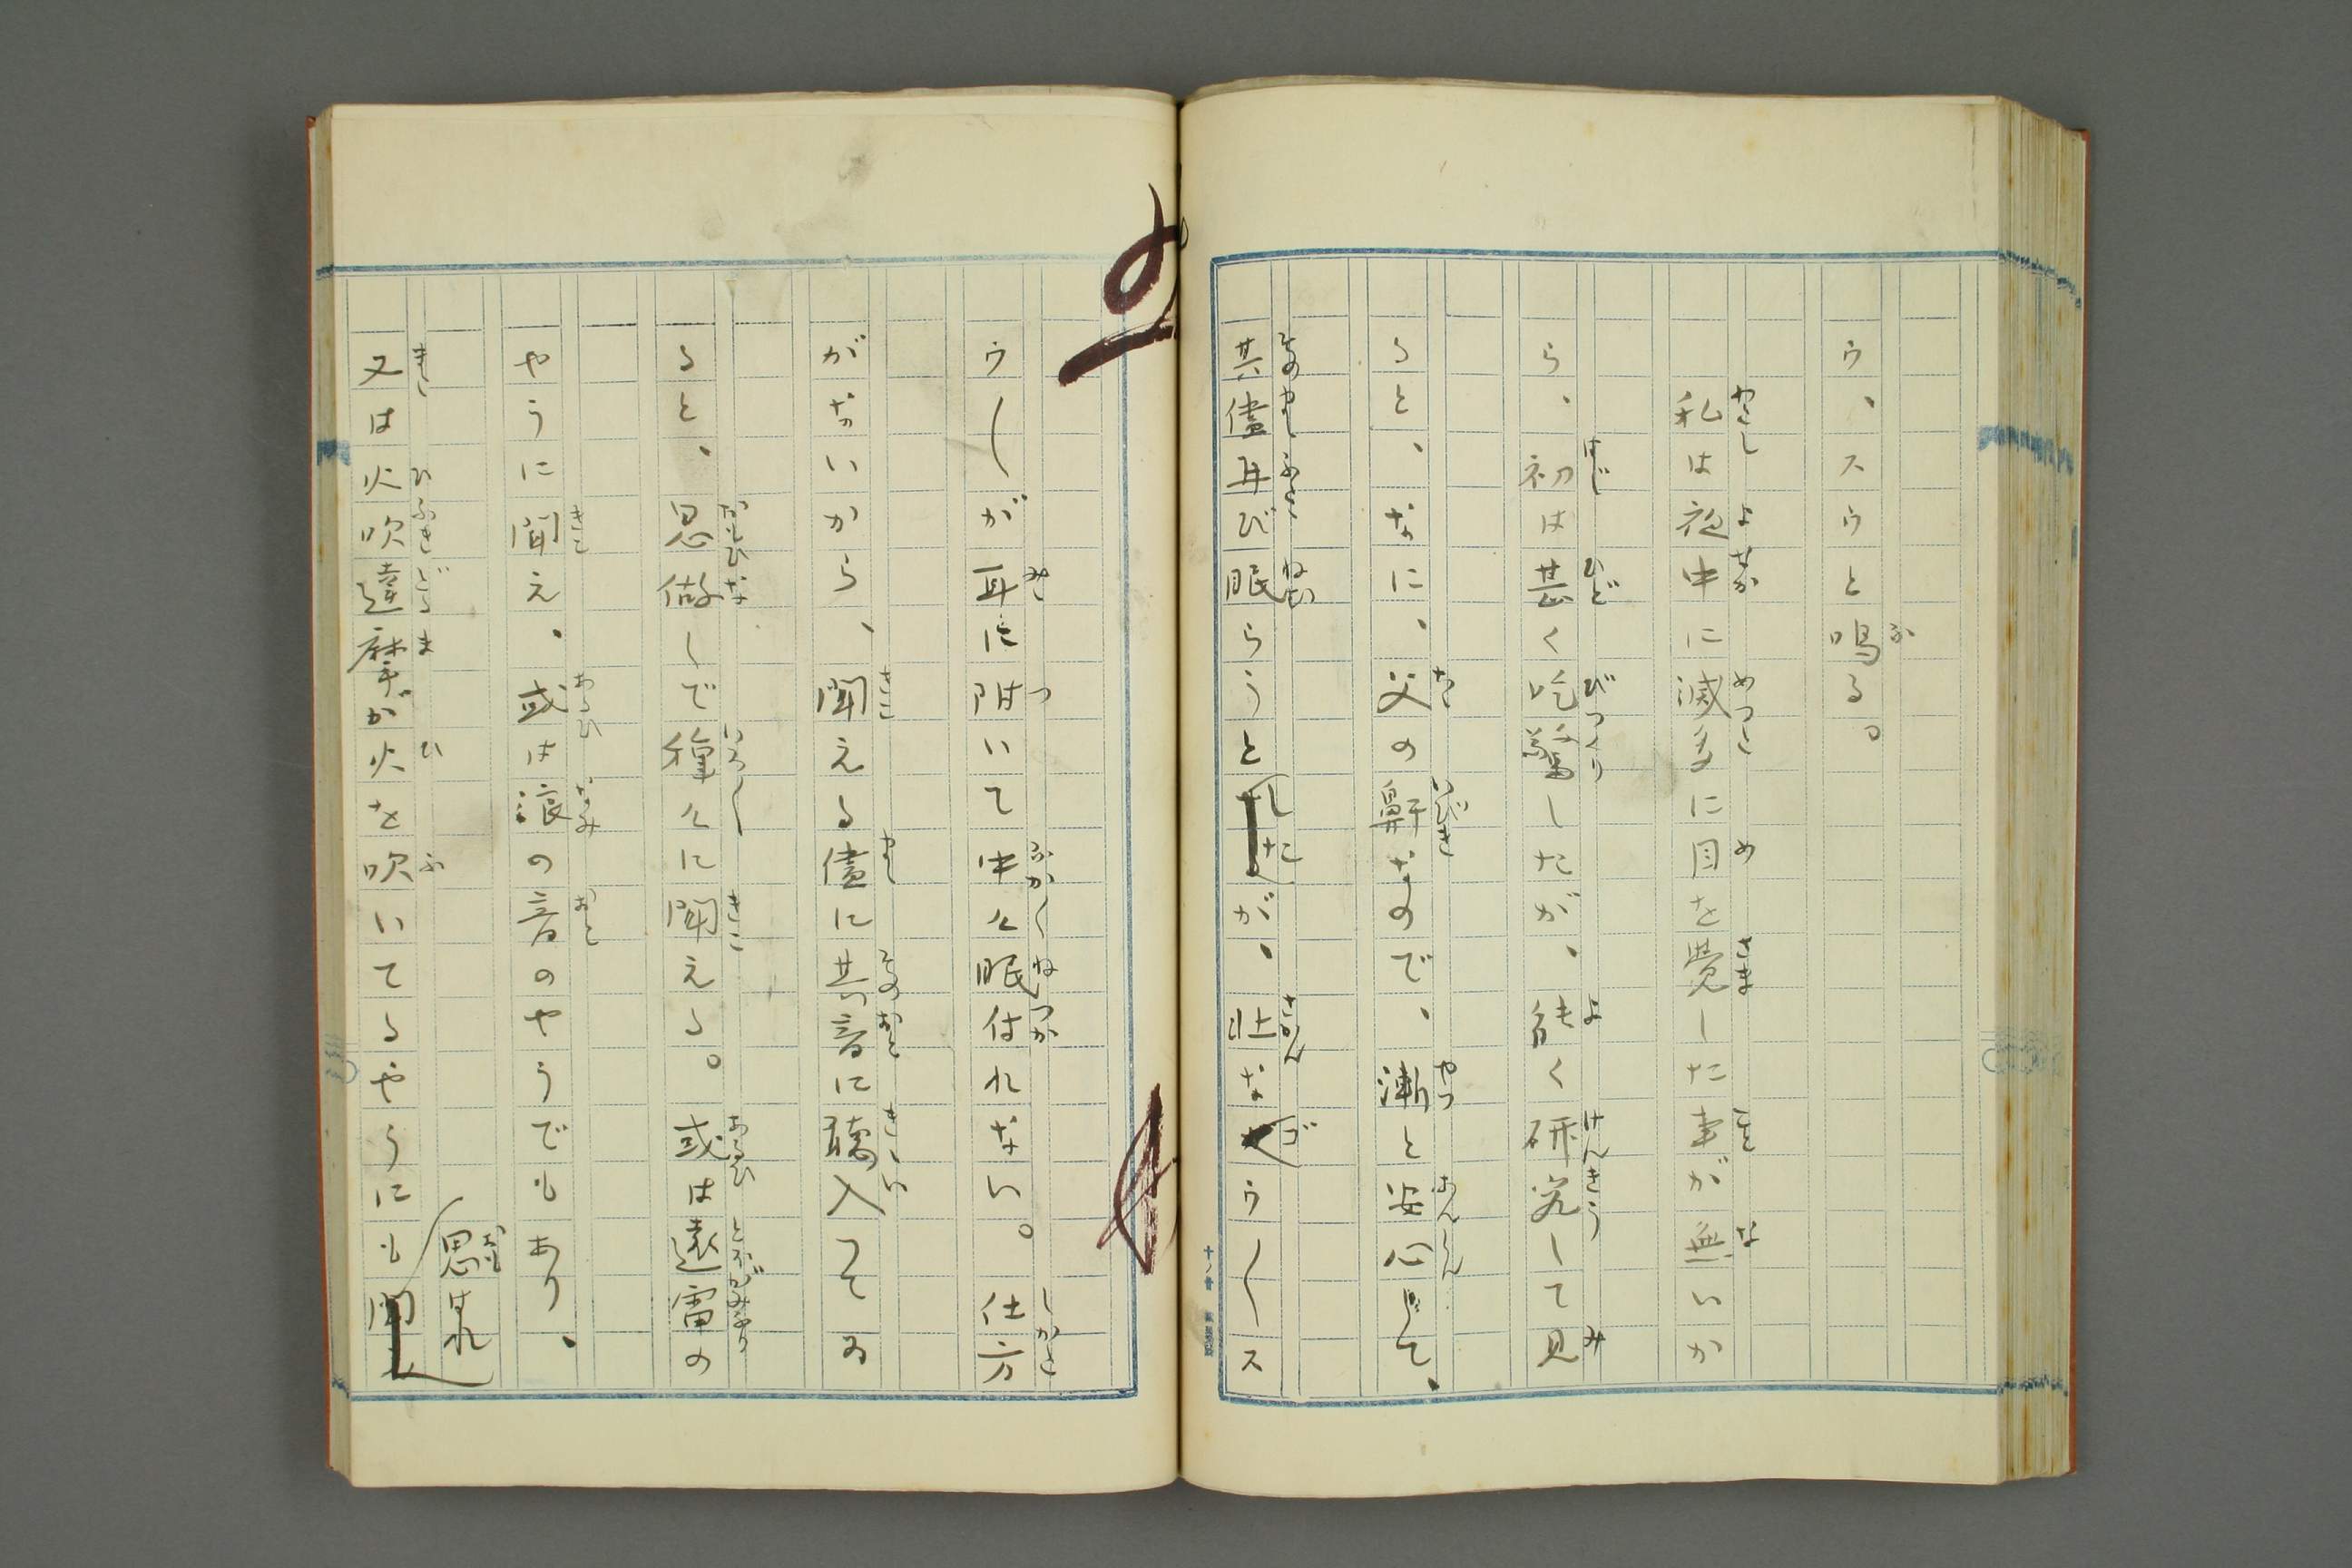 ウ、スウと鳴る。
私は夜中に滅多に目を覚した事が無いか
ら、初は甚く吃驚したが、能く研究して見
ると、なに、父の鼾なので、漸と安心して、
其儘再び眠らうとしたが、壮なゴウ〱ス
ウ〱が耳に附いて中々眠付れない。仕方
がないから、聞える儘に其音に聴入つてゐ
ると、思做しで種々に聞える。或は遠雷の
やうに聞え、或は浪の音のやうでもあり、
又は火吹達摩が火を吹いてるやうにも思はれ